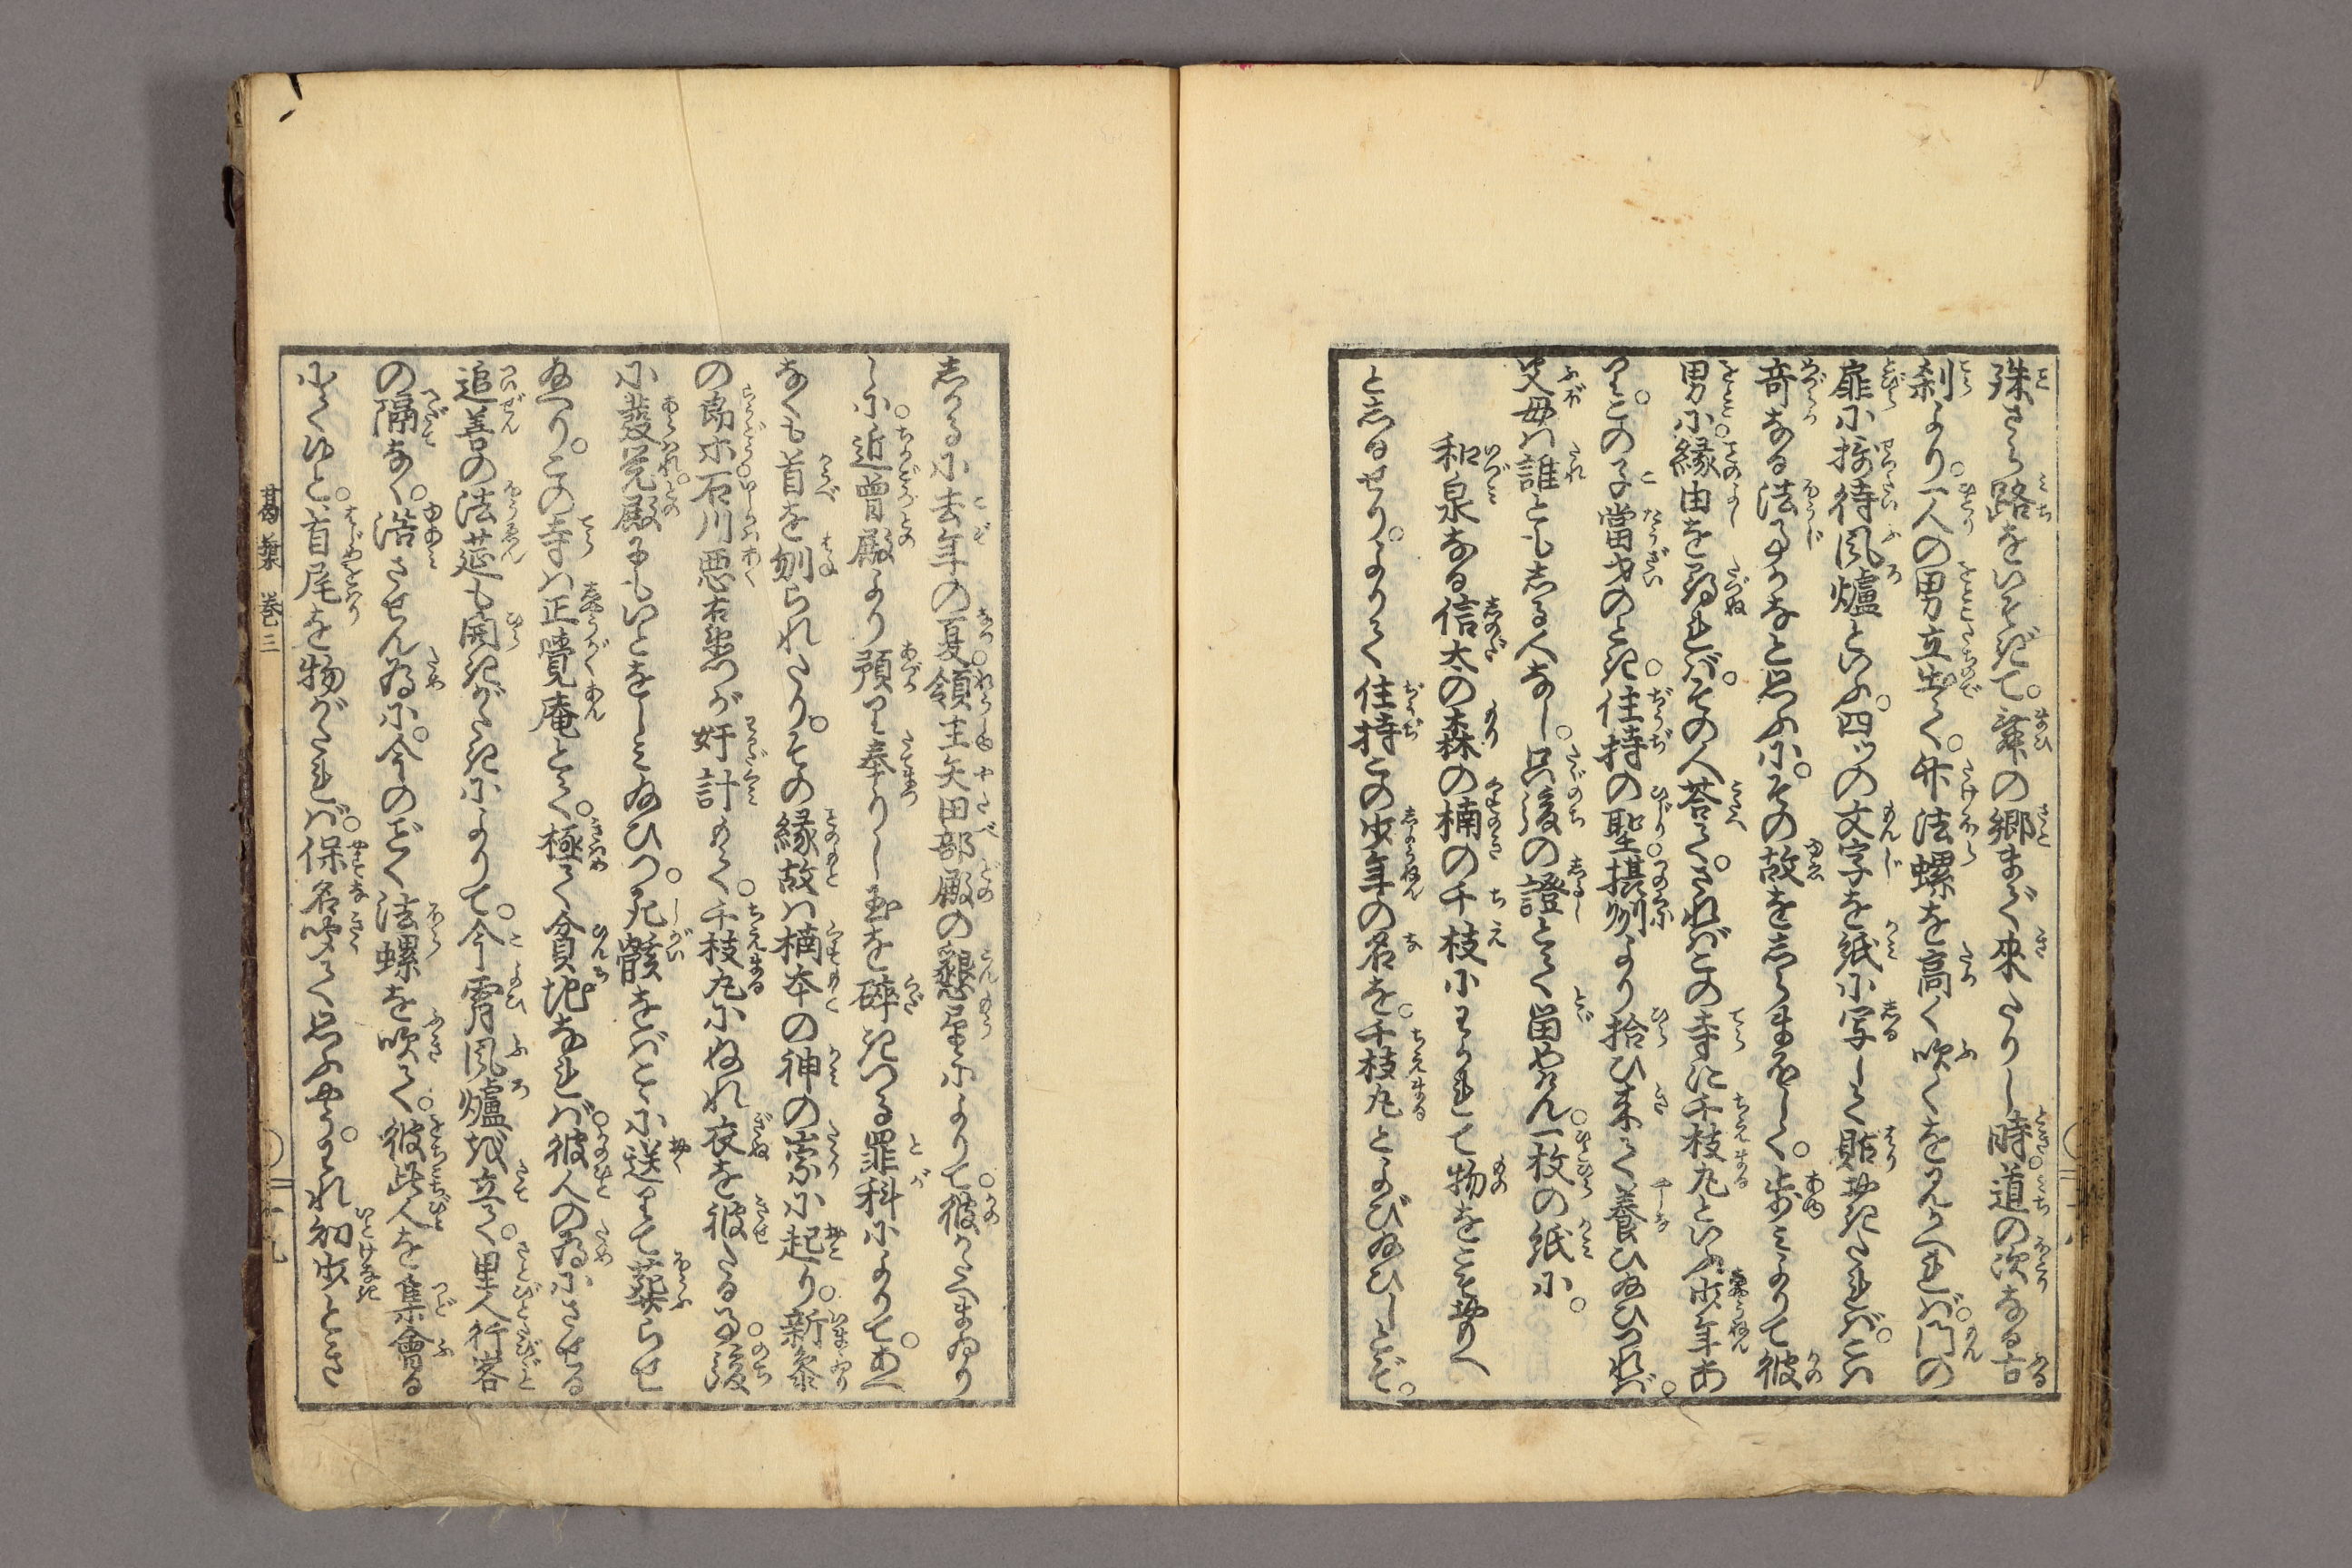 殊さら路をいそぎて。莾の郷まで来たりし時道の次なる古
刹より。一人の男立出て。竹法螺を高く吹くをかんがへれば。門の
扉に摂待風爐といふ。四ツの文字を紙に写して貼おきたれば。こハ
奇なる法事かなと思ふに。その故をしらまほしく。歩みよりて彼
男に。縁由を尋れば。その人荅て。さればこの寺に千枝丸といふ少年あ
り。この子當才のとき。住持の聖。摂州より拾ひ来て養ひ給ひつれバ。
父母ハ誰ともしる人なし。只後の證とて留やけん。一枚の紙に。
和泉なる信太の森の楠の千枝にわかれて物をこそおもへ
としるせり。よりて住持この少年の名を。千枝丸とよび給ひしとぞ。
しかるに去年の夏。領主矢田部殿の懇望によりて。彼かたへまゐり
しに。近曽殿より預り奉りし玉を碎きつる罪科によりて。あへ
なくも首を刎られたり。その縁故ハ楠本の神の祟に起り。新参
の郎等。石川悪右衛門が奸計もて。千枝丸にぬれ衣を被たる事。後
に發覚。殿にもいとをしみ給ひつ。死骸をばこゝに送りて葬らせ
給へり。この寺ハ正覚庵とて。極て貧地なれば。彼人の為にさせる
追善の法莚も開きがたきによりて。今宵風爐を立て。里人行客
の隔なく。浴させん為に。今のごとく法螺を吹て。彼此人を集會る
にてゆと。首尾を物がたれば。保名聞て思ふやう。われ幼少ときさ
葛葉 巻三